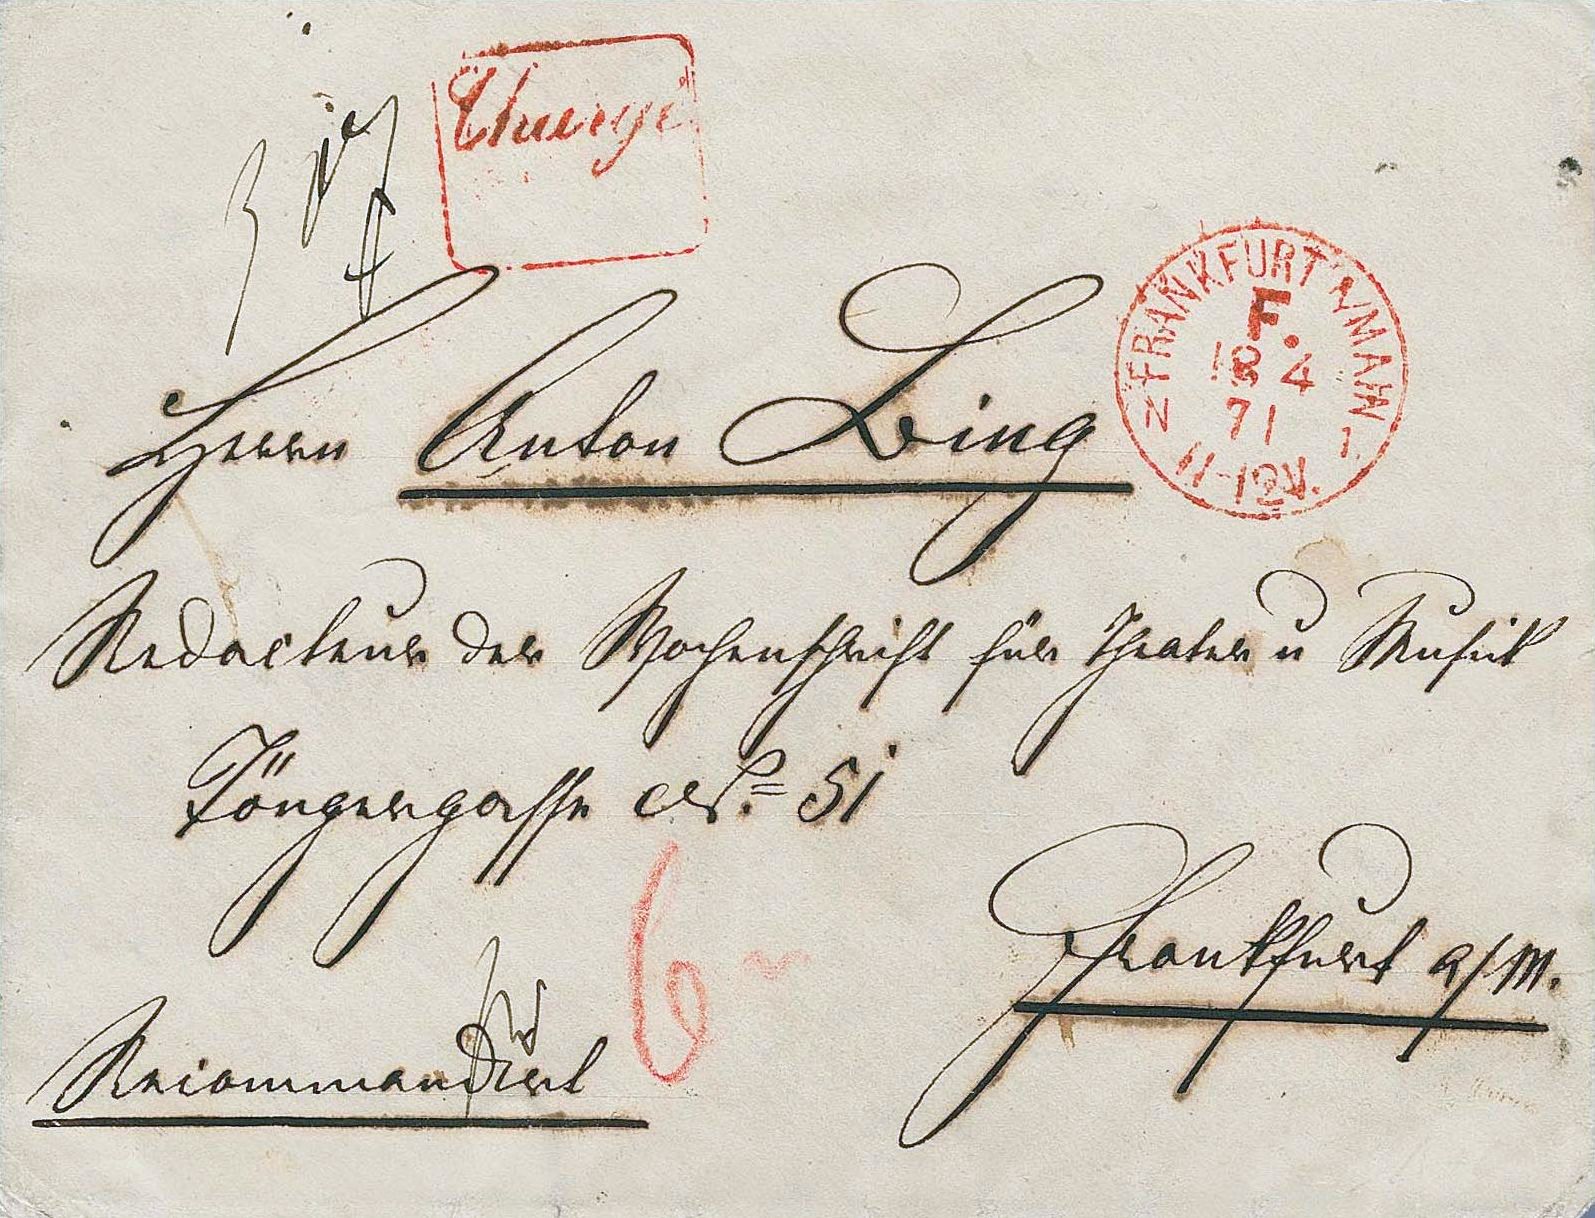 Chargé
FRANKFURT A/MAIN
F.
18 4
71
N 1
11-12V.
Herrn Anton Bing
Redacteur der Wochenschrift für Theater u Musik
Töngesgasse No. 51
6
Frankfurt a/M.
Recommandirt